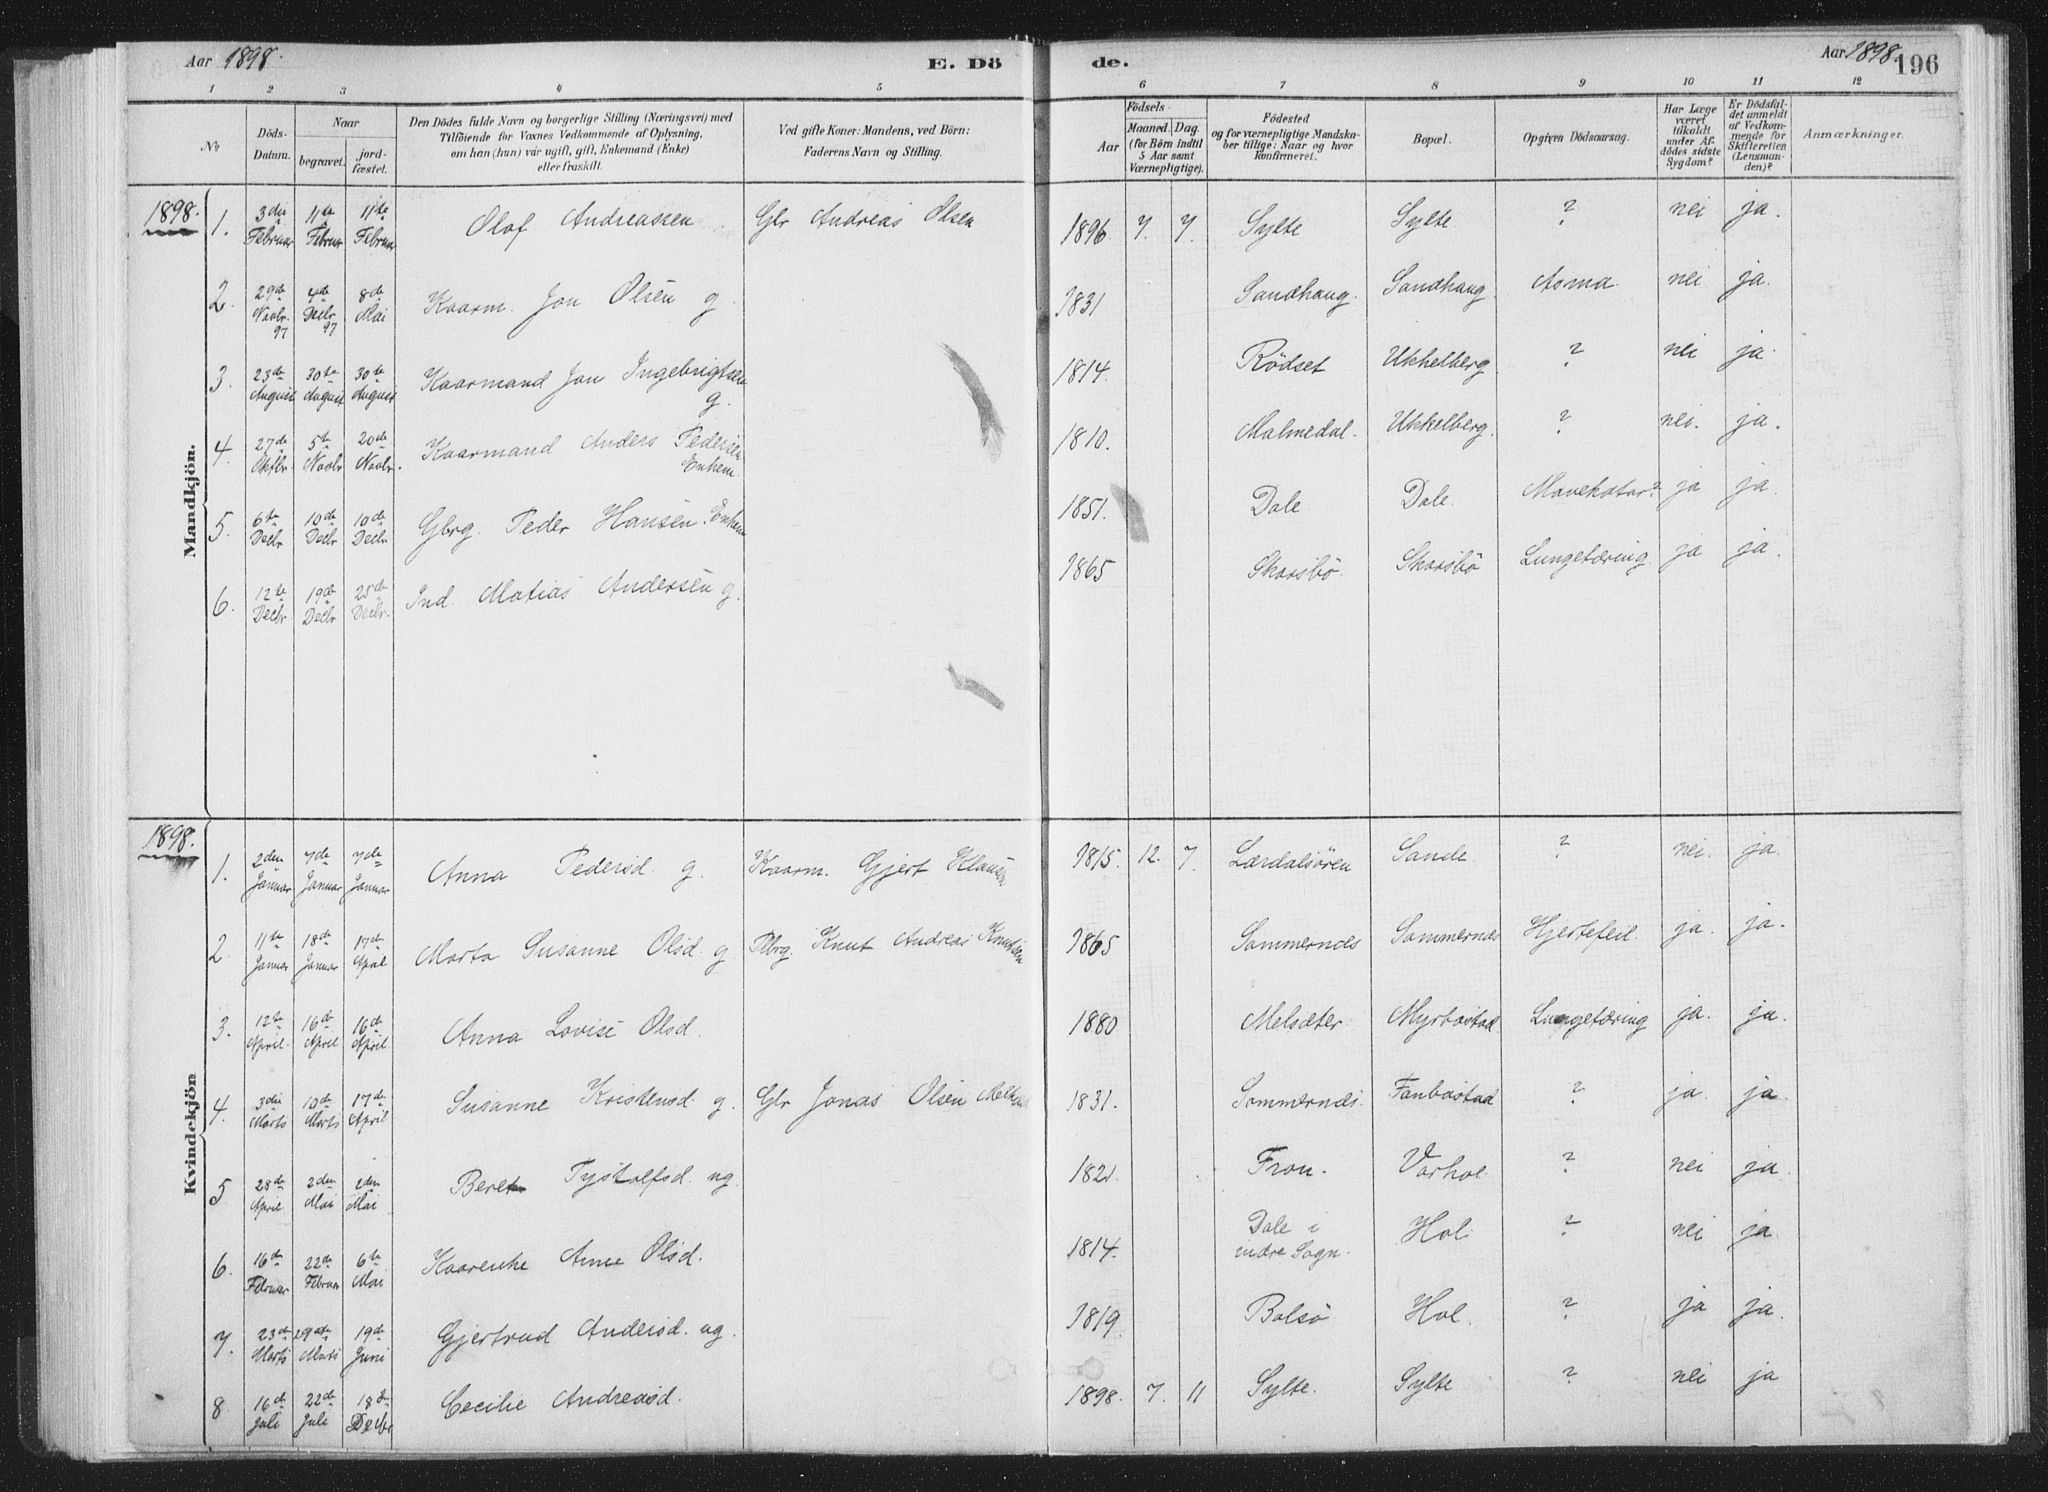 Aar 1898. E. Dö de. Aar 1898. 196
1 2 3 4 5 6 7 8 9 10 11 12
No
Döds-Datum.
Naar
begravet.
jord-fæstet.
Den Dödes fulde Navn og borgerlige Stilling (Næringsvei) med
Tilföiende for Voxnes Vedkommende af Oplysning,
om han (hun) var ugift, gift, Enkemand (Enke)
eller fraskilt.
Ved gifte Koner: Mandens, ved Börn:
Faderens Navn og Stilling.
Födsels-
Aar
Maaned. Dag.
(for Börn indtil
5 Aar samt
Værnepligtige).
Födested
og for værnepligtige Mandska-
ber tillige: Naar og hvor
konfirmeret.
Bopæl.
Opgiven Dödsaarsag.
Har Læge
været
tilkaldt
under Af-
dödes sidste
Sygdom?
Er Dödsfal-
det anmeldt
af Vedkom-
mende for
Skifteretten
(Lensman-
den)?
Anmærkninger.
Mandkjön.
1898. 1. 3die Februar 11te Februar 11te Februar Olof Andreassen Glr Andreas Olsen 1896 7. 7. Sylte Sylte ? nei ja.
2. 29de Novbr. 97 4de Decbr 97 8de Mai Kaarm. Jon Olsen g 1831 Sandhaug. Sandhaug Asma. nei ja.
3. 23de August 30te August 30te August Kaarmand Jon Ingebrigtsen g. 1814. Rödset Ukkelberg ? nei ja.
4. 27de Oktbr. 5te Novbr 20de Novbr. Kaarmand Anders Pedersen Enkem. 1810. Malmedal. Ukkelberg. ? nei. ja.
5. 6te Decbr 10de Decbr 10de Decbr. Gbrg. Peder Hansen. Enkem 1851. Dale Dale. Mavekatar? ja ja.
6. 12te Decbr. 19de Decbr 25de Decbr. Ind. Matias Andersen g. 1865 Skorsbö. Skarsbö Lungetæring. ja ja.
Kvindekjön
1898. 1. 2den Januar 7de Januar 7de Januar Anna Pedersd. g. Kaarm. Gjert Klausen 1815. 12. 7. Lærdalsören Sande. ? nei. ja.
2. 11te Januar 18de Januar 17de April Marta Susanne Olsd. g Plbrg. Knut Andreas Knudsen 1865 Sommernes Sommernes Hjertefeil. ja. ja.
3. 12te April. 16de April 16de April. Anna Lovise Olsd. 1880 Melsæter. Myrbostad Lungetæring ja. ja.
4. 3die Marts 10de Marts 17de April Susanne Kristensd. g. Glr Jonas Olsen 1831. Sommernes. Fanbostad ? ja. ja.
5 28de April 2den Mai 2den Mai Beret Tystolfsd. ug. 1821. Fron. Varhol ? nei ja.
6. 16de Februar 22de Februar 6te Mai Kaarenke Anne Olsd. 1814. Dale i indre Sogn. Hol ? nei ja.
7. 23de Marts 29de Marts 19de Juni Gjertrud Andersd. ug. 1819. Bolsö Hol. ? ja ja.
8 16de Juli 22de Juli 18de Decbr Cecilie Andreasd. 1898. 7. 11 Sylte. Sylte ? nei ja